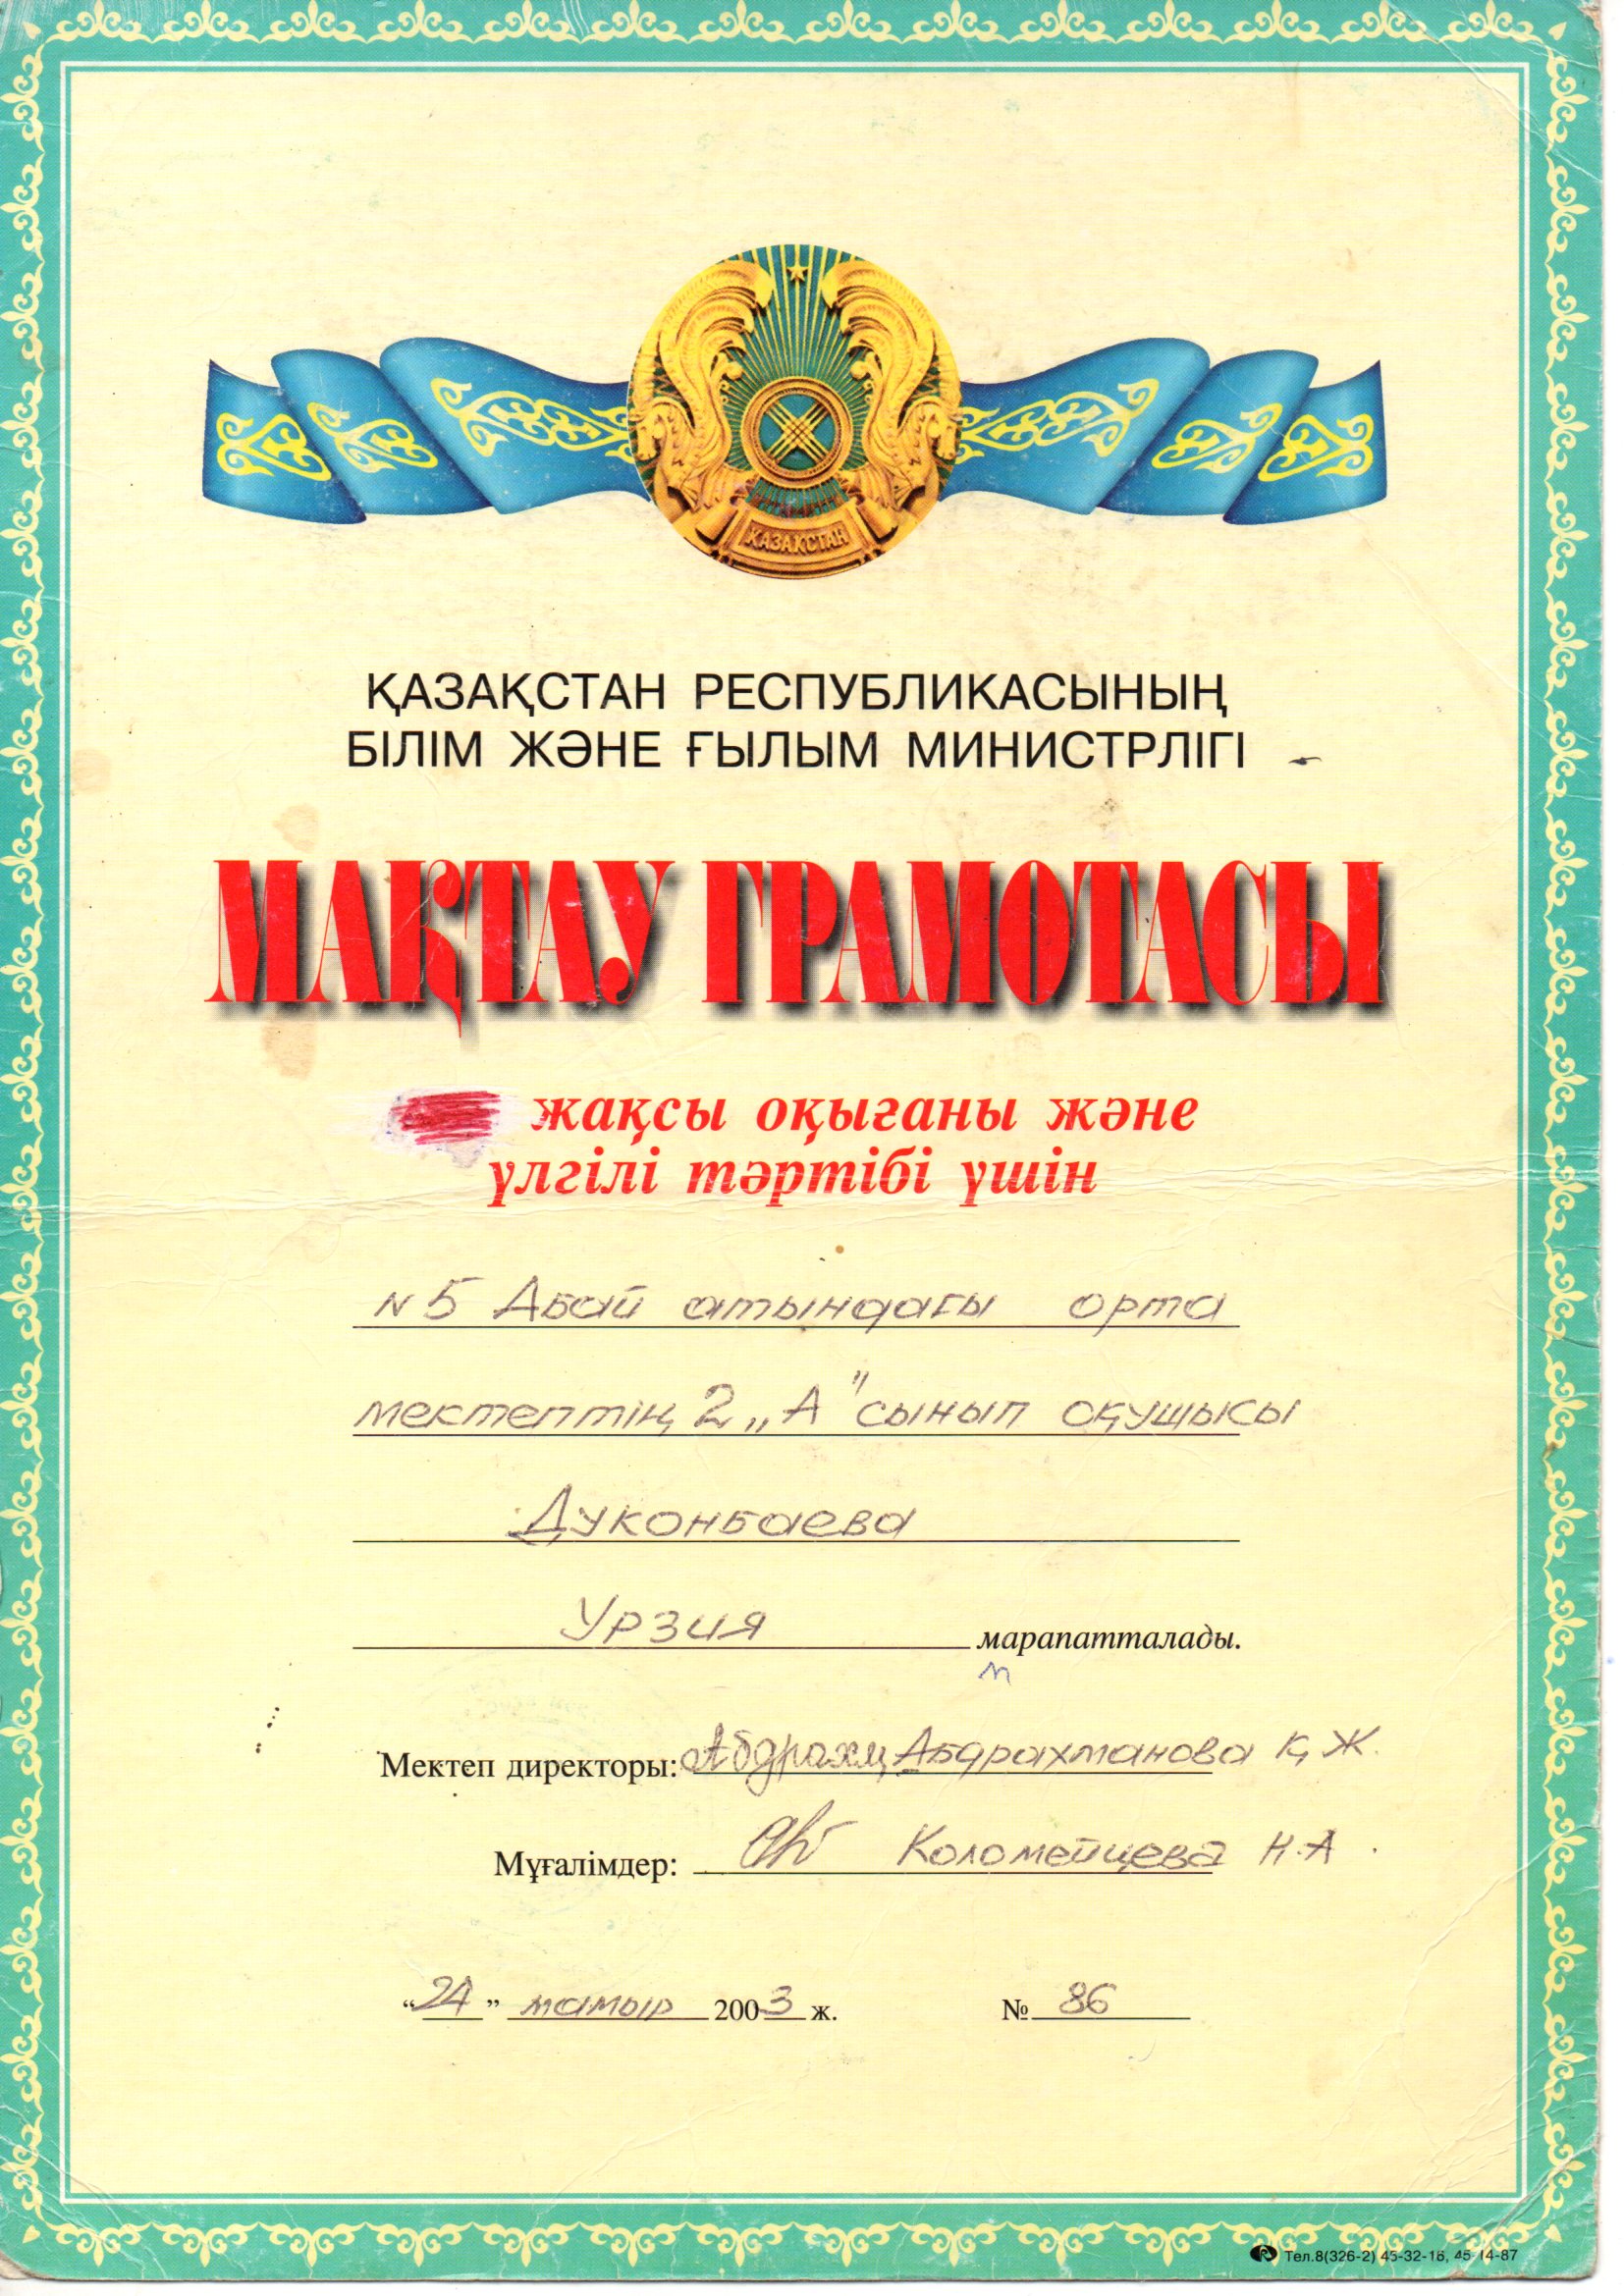 ҚАЗАҚСТАН
ҚАЗАҚСТАН РЕСПУБЛИКАСЫНЫҢ
БІЛІМ ЖӘНЕ ҒЫЛЫМ МИНИСТРЛІГІ
МАҚТАУ ГРАМОТАСЫ
жақсы оқығаны және
үлгілі тәртібі үшін
N 5 Абай атындағы орта
мектептің 2 „А" сынып оқушысы
Дуконбаева
Урзия марапатталады.
Мектеп директоры: Абдрахм Абдрахманова Қ.Ж.
Мұғалімдер: Коломейцева Н.А.
“24” мамыр 2003 ж. № 86
Тел.8(326-2) 45-32-16, 45-14-87